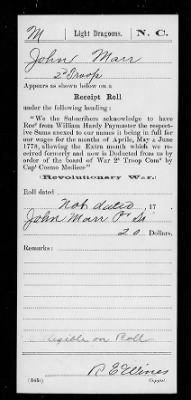 M | Light Dragoons. | N. C.
John Marr
2d Troop
Appears as shown below on a
Receipt Roll
under the following heading:
"We the Subscribers acknowledge to have
Recd from William Hardy Paymaster the respect-
ive Sums anexed to our names it being in full for
our wages for the months of Aprile, May & June
1778, allowing the Extra month which we re-
ceived formerly and now is Deducted from us by
order of the board of War 2d Troop Comd by
Capt Cosmo Medices"
(Revolutionary War.)
Roll dated
Not dated, 17
John Marr Pr Dr
20 Dollars.
Remarks:
on Roll
(545c) Copyist.